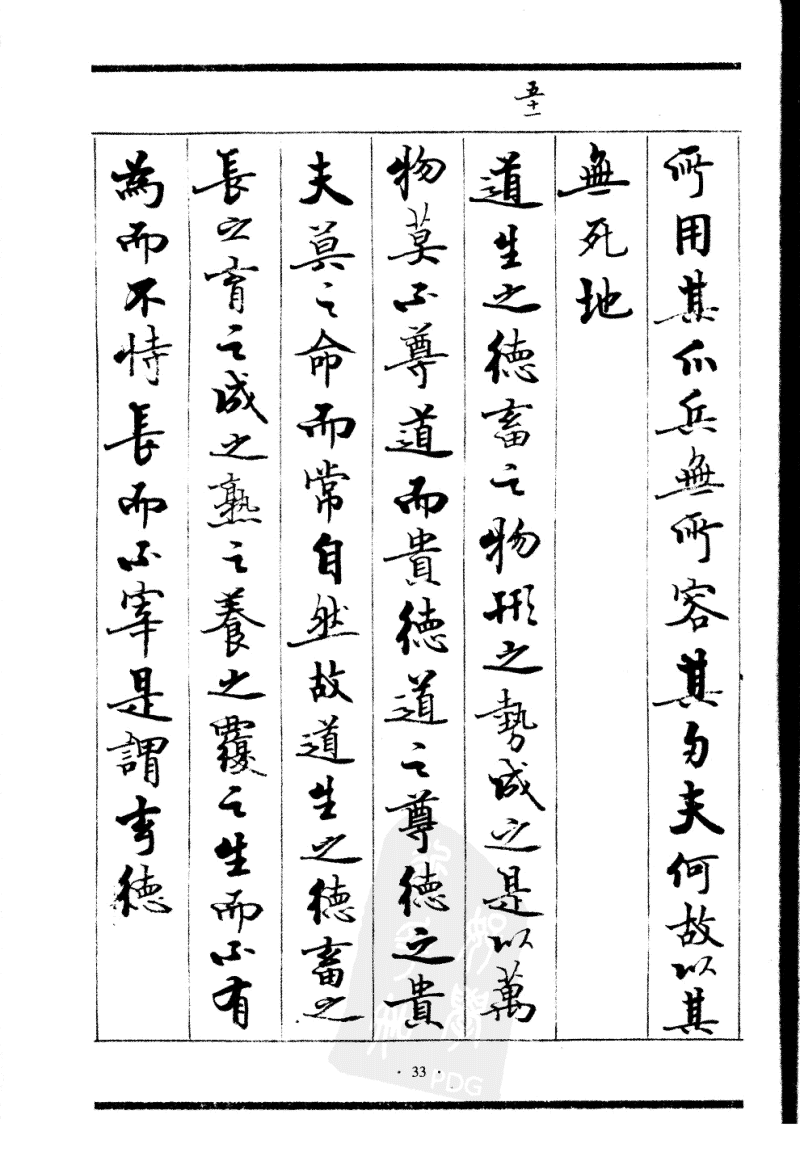 五十一
所用其爪兵無所容其刃夫何故以其
無死地
道生之德畜之物形之勢成之是以萬
物莫不尊道而貴德道之尊德之貴
夫莫之命而常自然故道生之德畜之
長之育之成之熟之養之覆之生而不有
為而不恃長而不宰是謂玄德
· 33 ·
PDG